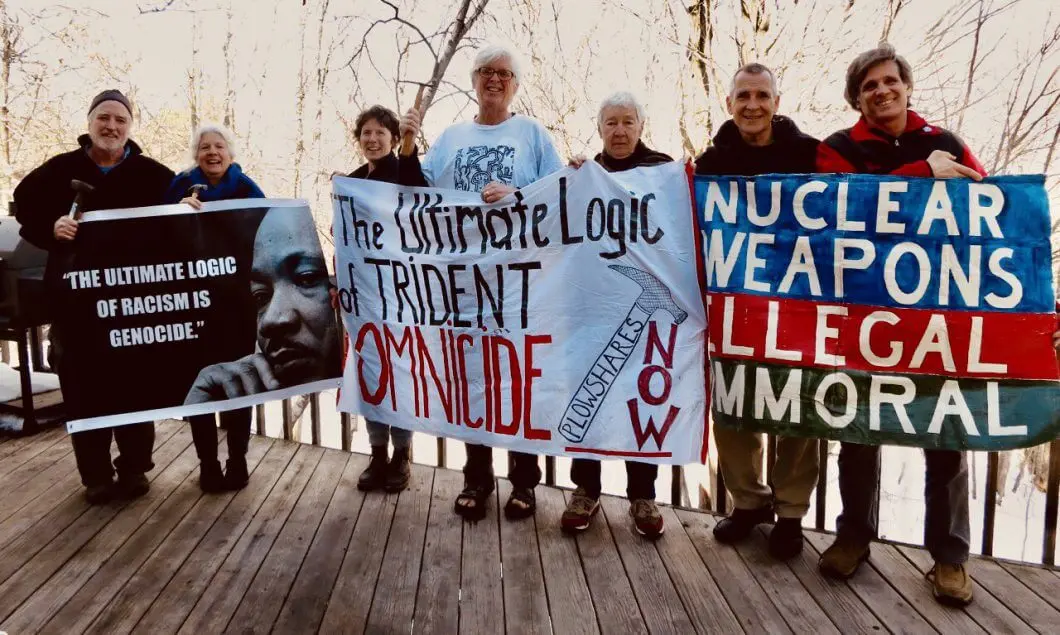 "THE ULTIMATE LOGIC
OF RACISM IS
GENOCIDE."
The Ultimate Logic
of TRIDENT
OMNICIDE
PLOWSHARES
NOW
NUCLEAR
WEAPONS
ILLEGAL
IMMORAL